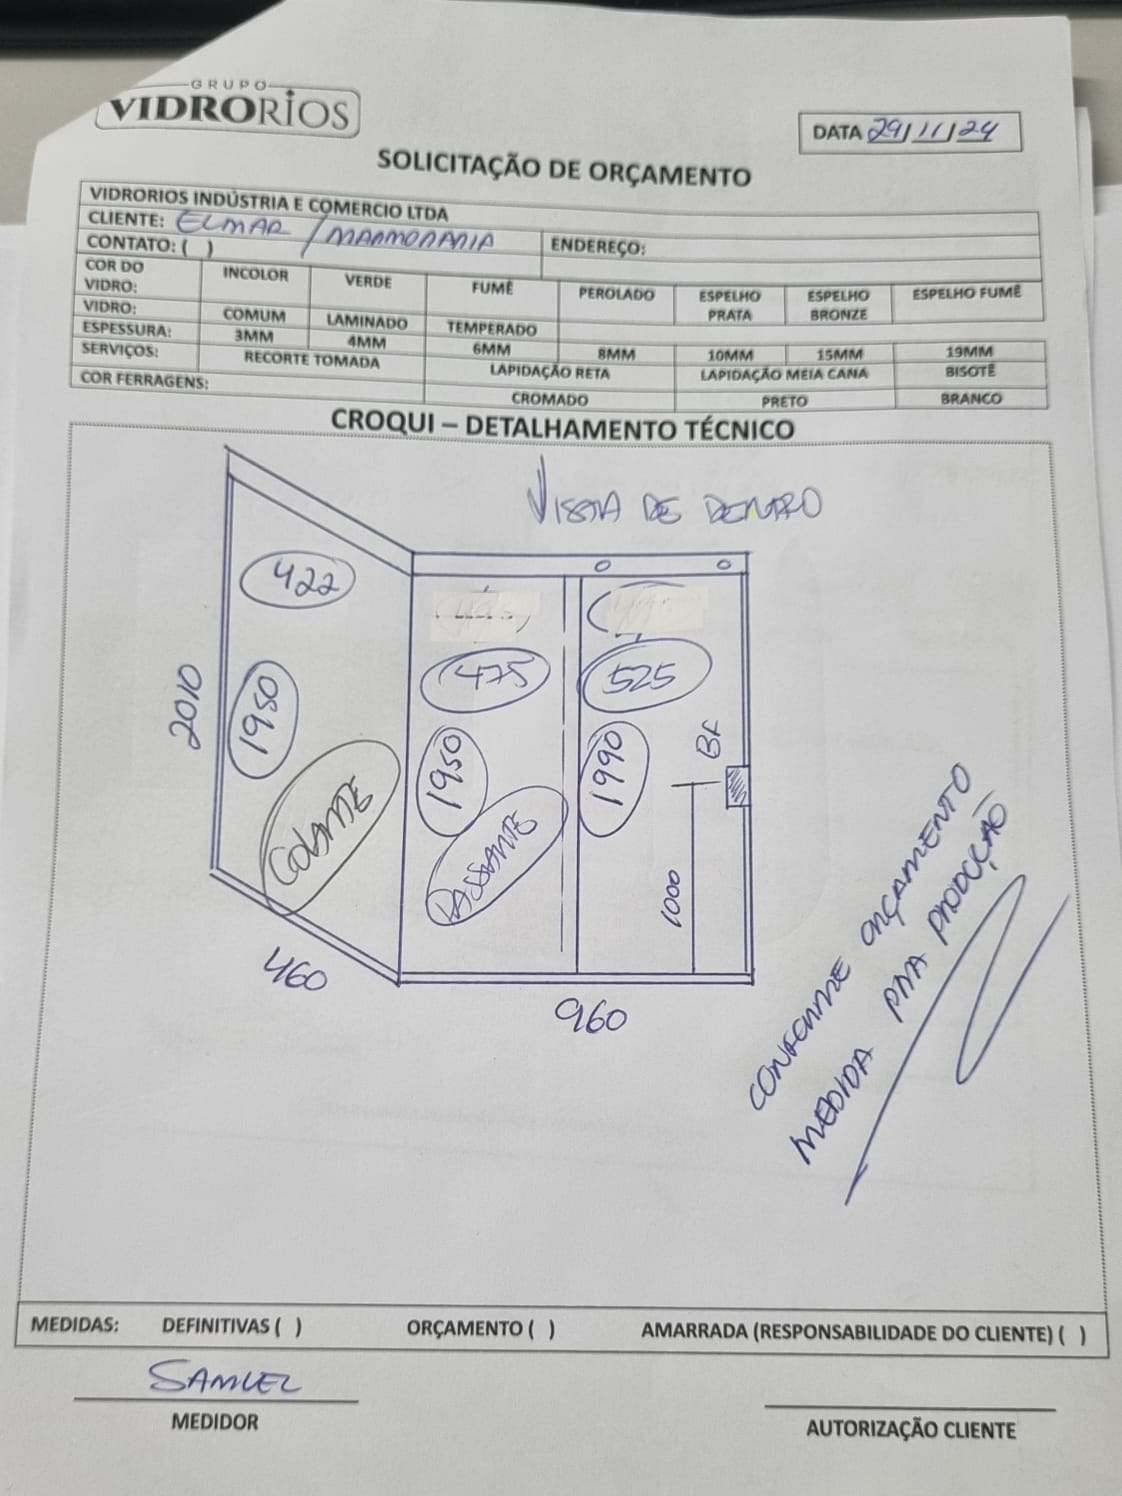 GRUPO
VIDRORIOS
DATA 29/11/24
SOLICITAÇÃO DE ORÇAMENTO
VIDRORIOS INDÚSTRIA E COMERCIO LTDA
CLIENTE: ELMAR / MARMORARIA
CONTATO: ( ) ENDEREÇO:
COR DO VIDRO: INCOLOR VERDE FUMÊ PEROLADO ESPELHO PRATA ESPELHO BRONZE ESPELHO FUMÊ
VIDRO: COMUM LAMINADO TEMPERADO
ESPESSURA: 3MM 4MM 6MM 8MM 10MM 15MM 19MM
SERVIÇOS: RECORTE TOMADA LAPIDAÇÃO RETA LAPIDAÇÃO MEIA CANA BISOTÊ
COR FERRAGENS: CROMADO PRETO BRANCO
CROQUI – DETALHAMENTO TÉCNICO
VISTA DE DENTRO
422
475
525
2010
1950
1950
1990
BF
COLANTE
PASSANTE
1000
460
960
CONFORME ORÇAMENTO
MEDIDA PRA PRODUÇÃO
MEDIDAS: DEFINITIVAS ( ) ORÇAMENTO ( ) AMARRADA (RESPONSABILIDADE DO CLIENTE) ( )
SAMUEL
MEDIDOR
AUTORIZAÇÃO CLIENTE